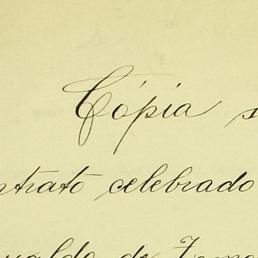 Cópia
ntrato celebrado
valdo de